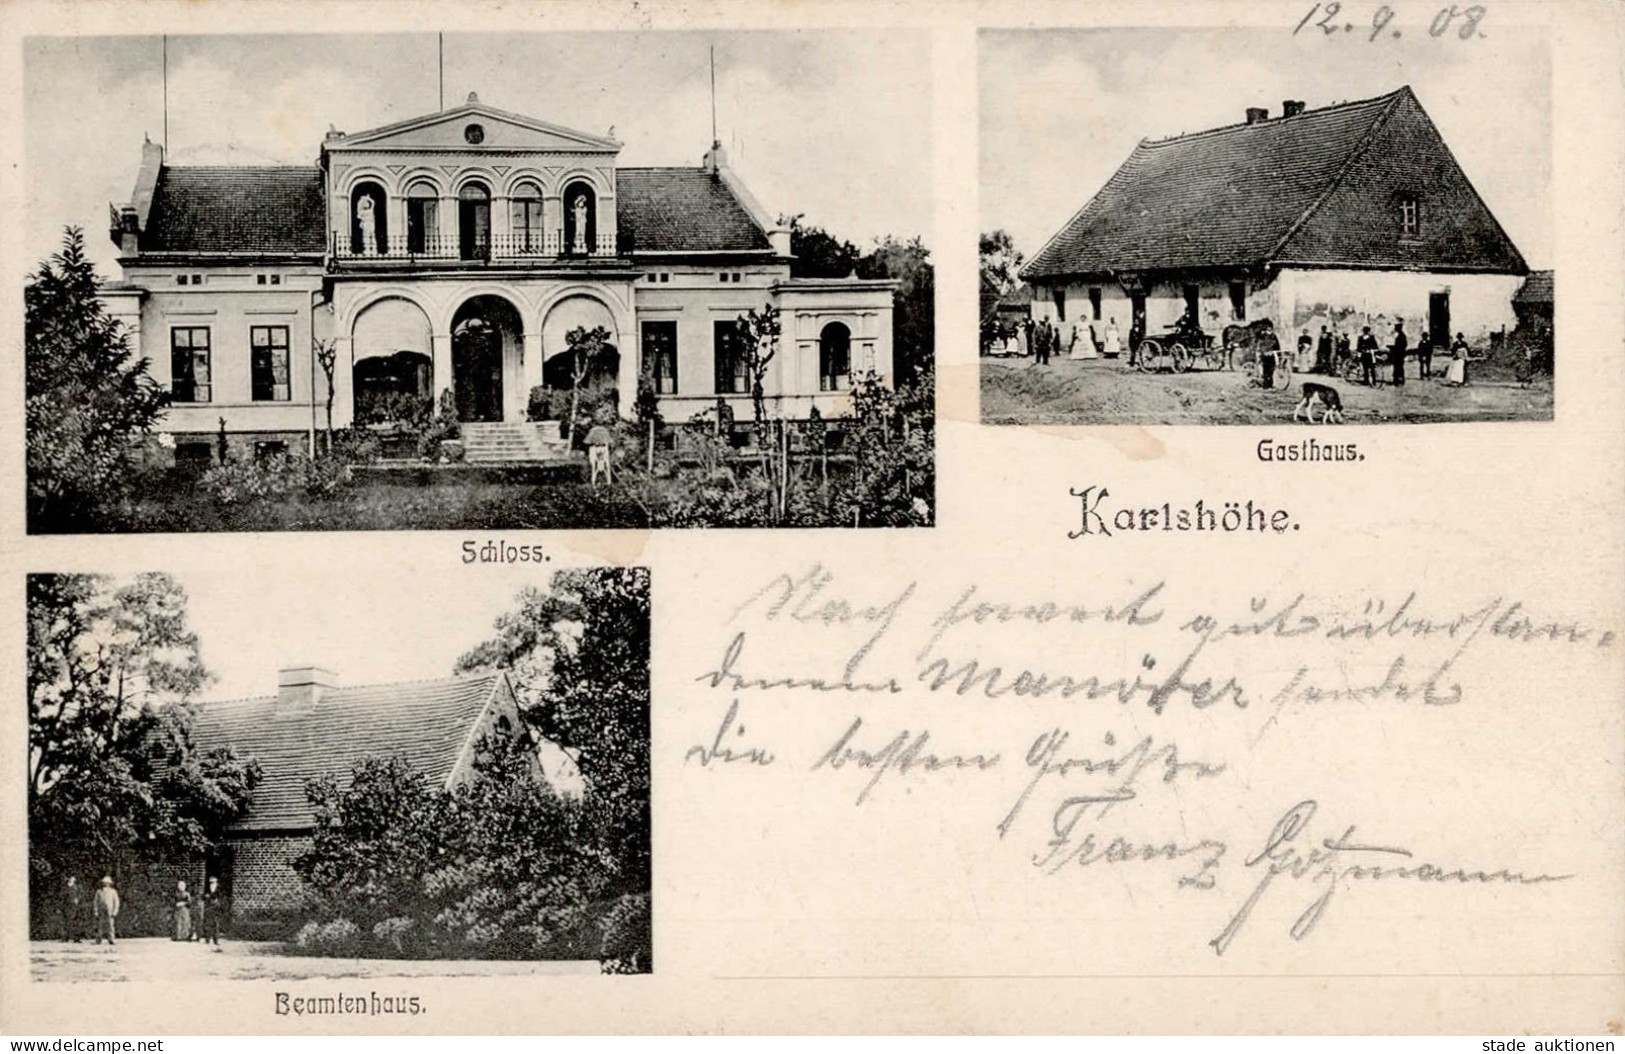 12. 9. 08.
Schloss.
Gasthaus.
Karlshöhe.
Nach soweit gut überstan-
denem Manöver sendet
die besten Grüße
Franz Gotzmann
Beamtenhaus.
www.delcampe.net
stade auktionen